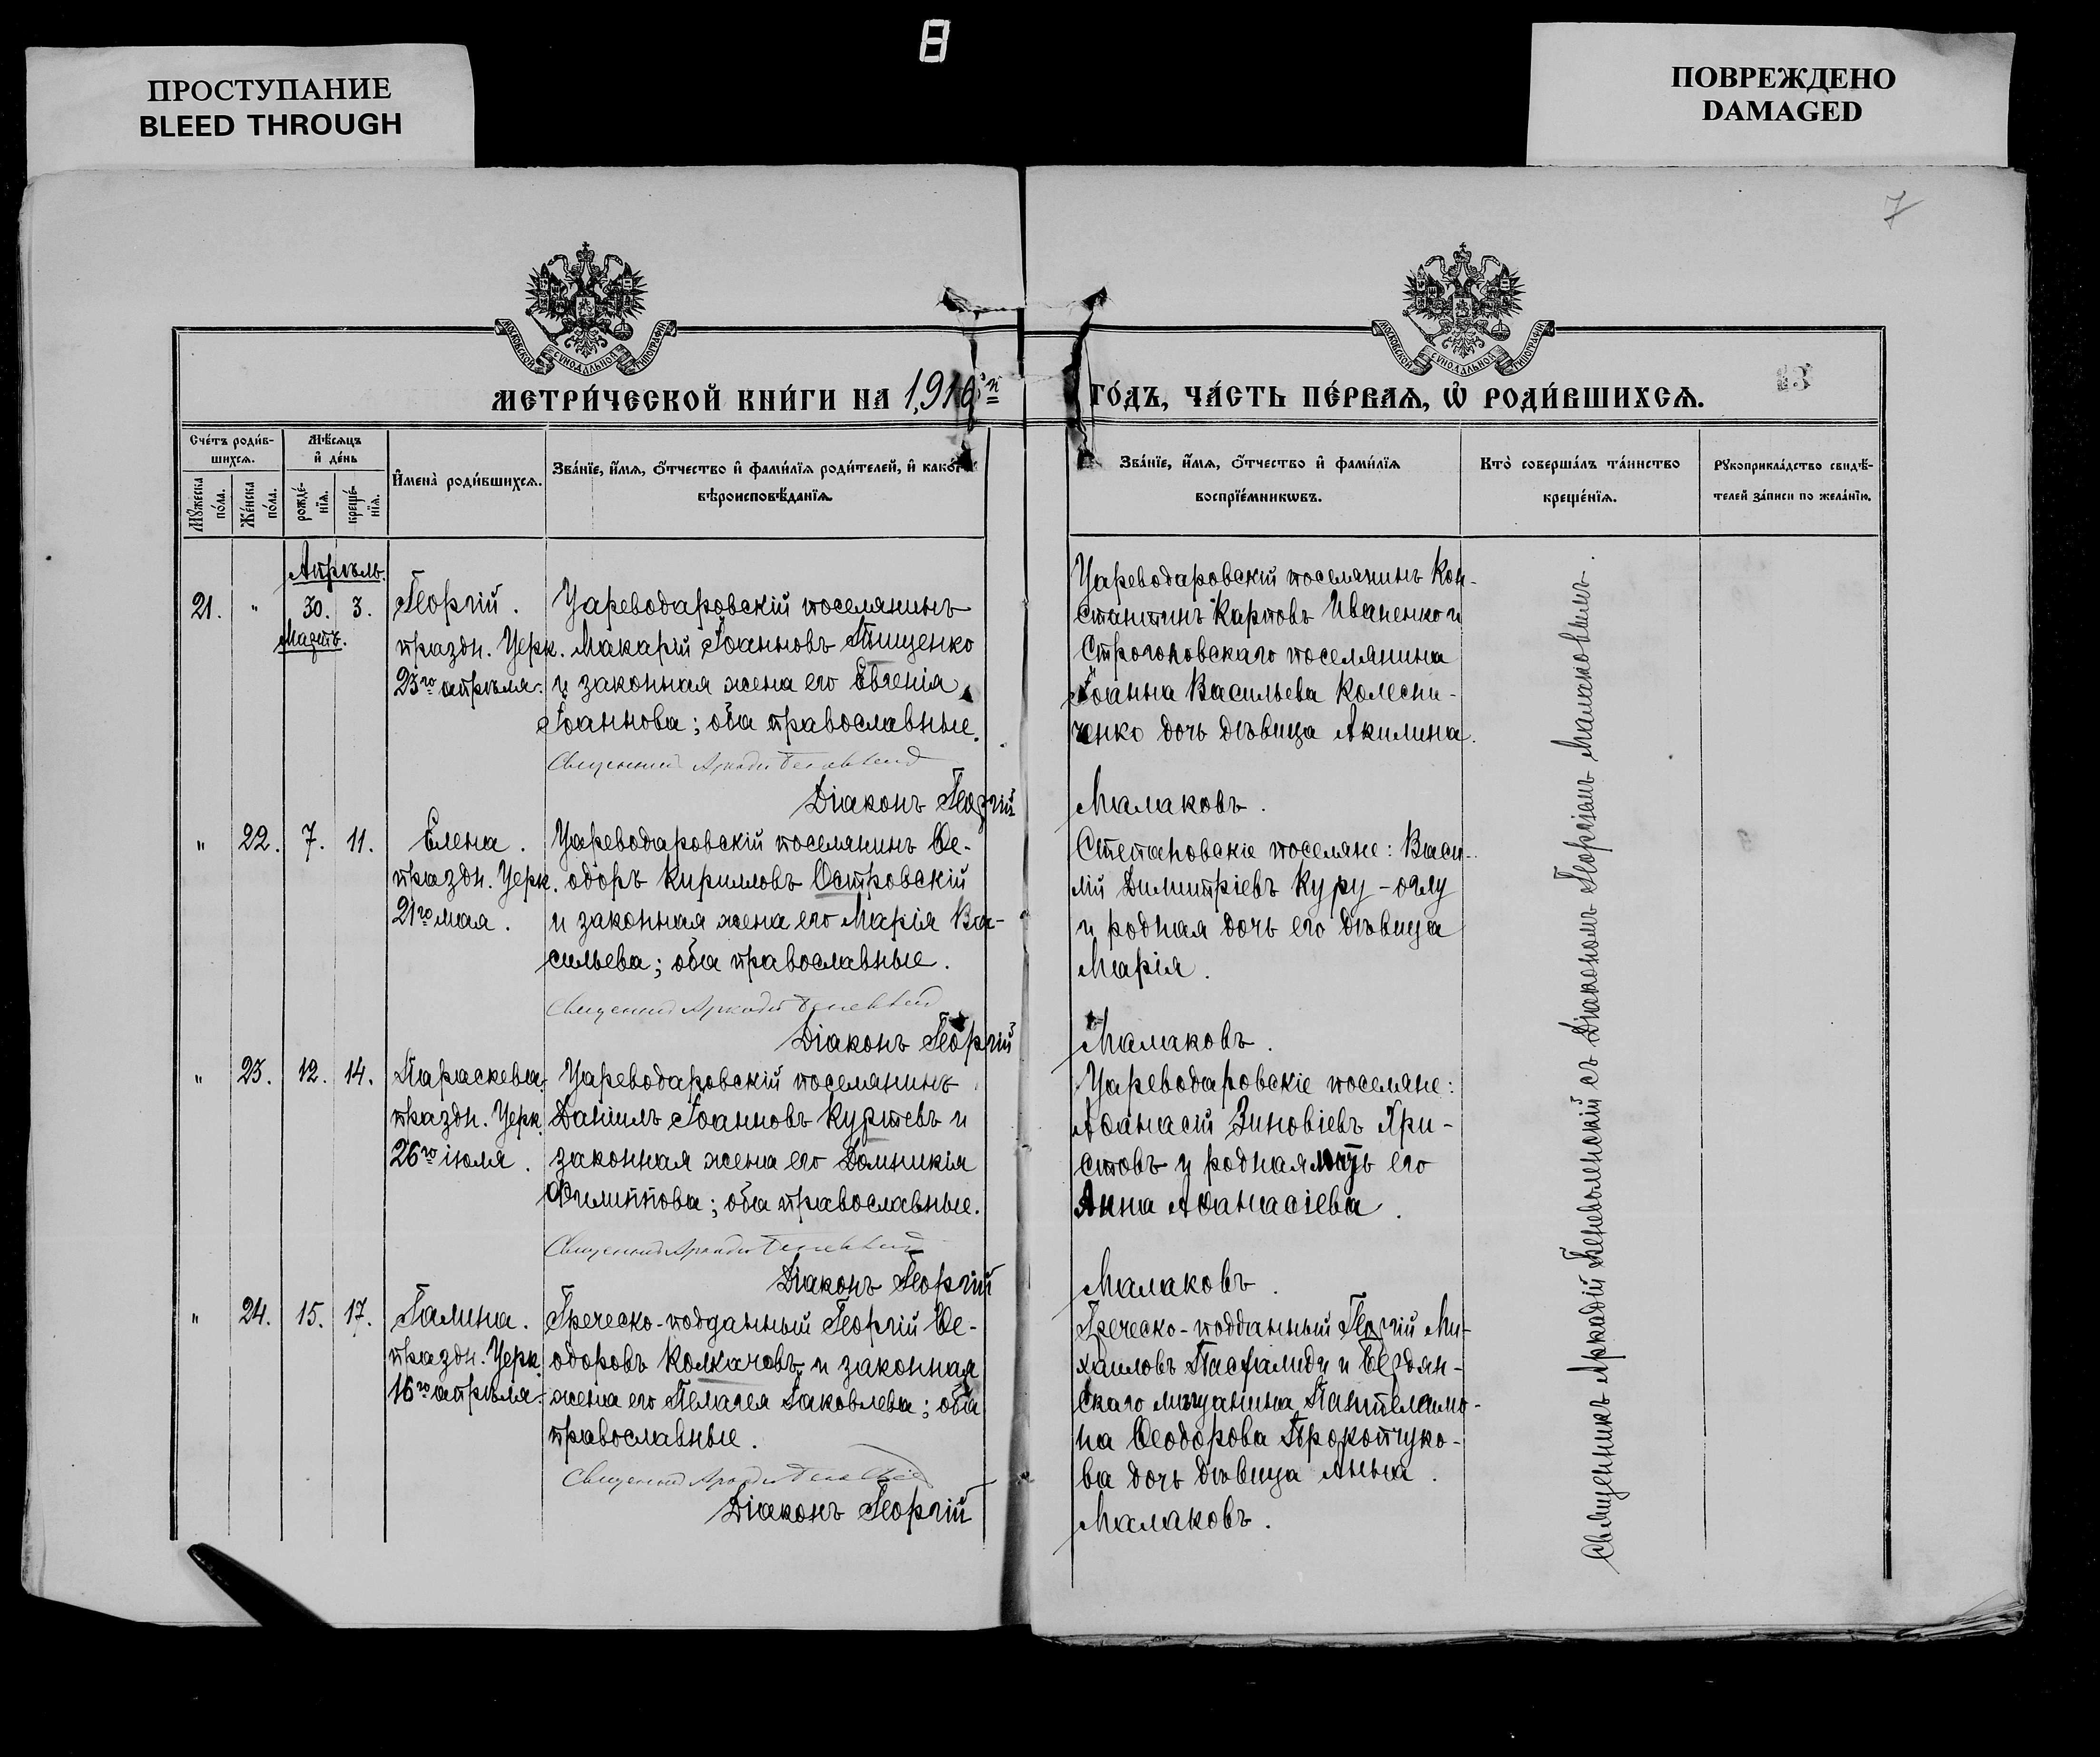 ПРОСТУПАНИЕ
BLEED THROUGH
8
ПОВРЕЖДЕНО
DAMAGED
7
МОСКОВСКОЙ СѴНОДАЛЬНОЙ ТИПОГРАФІИ
МОСКОВСКОЙ СѴНОДАЛЬНОЙ ТИПОГРАФІИ
МЕТРИ́ЧЕСКОЙ КНИ́ГИ НА 1916й
ГО́ДЪ, ЧА́СТЬ ПЕ́РВАЯ, Ѡ҆ РОДИ́ВШИХСЯ.
13
Сче́тъ роди́в-
шихся.
Мѣ́сяцъ
и҆ де́нь
Мꙋ́жеска по́ла.
Же́нска по́ла.
рожде́-
нїя.
креще́-
нїя.
И҆мена̀ роди́вшихся.
Зва́нїе, и҆́мя, ѻ҆́тчество и҆ фами́лїя роди́телей, и҆ како́гѡ
вѣроисповѣ́данїя.
Зва́нїе, и҆́мя, ѻ҆́тчество и҆ фами́лїя
воспрїе́мникѡвъ.
Кто̀ соверша́лъ та́инство
креще́нїя.
Рꙋкоприкла́дство свидѣ́-
телей за́писи по жела́нїю.
Апрѣль.
21. " 30. 3. Георгій.
Мартъ.
праздн. Церк.
23го апрѣля.
Цареводаровскій поселянинъ
Макарій Іоанновъ Тищенко
и законная жена его Евгенія
Іоаннова; оба православные.
Священникъ Аркадій
Діаконъ Георгій
Цареводаровскій поселянинъ Кон-
стантинъ Карповъ Иваненко и
Строгоновскаго поселянина
Іоанна Васильева Колесни-
ченко дочь дѣвица Акилина.
Малаковъ.
" 22. 7. 11. Елена.
праздн. Церк.
21го мая.
Цареводаровскій поселянинъ Ѳе-
одоръ Кирилловъ Островскій
и законная жена его Марія Ва-
сильева; оба православные.
Священникъ Аркадій
Діаконъ Георгій
Степановскіе поселяне: Васи-
лій Димитріевъ Куру-оглу
и родная дочь его дѣвица
Марія.
Малаковъ.
" 23. 12. 14. Параскева.
праздн. Церк.
26го іюля.
Цареводаровскій поселянинъ
Даніилъ Іоанновъ Куртевъ и
законная жена его Домникія
Филиппова; оба православные.
Священникъ Аркадій
Діаконъ Георгій
Цареводаровскіе поселяне:
Аѳанасій Зиновіевъ Хри-
стовъ и родная мать его
Анна Аѳанасіева.
Малаковъ.
" 24. 15. 17. Галина.
праздн. Церк.
16го апрѣля.
Греческо-подданный Георгій Ѳе-
одоровъ Колкачовъ и законная
жена его Пелагея Іаковлева; оба
православные.
Священникъ Аркадій
Діаконъ Георгій
Греческо-подданный Георгій Ми-
хаиловъ Пасхалиди и Бердян-
скаго мѣщанина Пантелеимо-
на Ѳеодорова Прокопчуко-
ва дочь дѣвица Анна.
Малаковъ.
Священникъ Аркадій Беневоленскій съ Діакономъ Георгіемъ Малаковымъ.